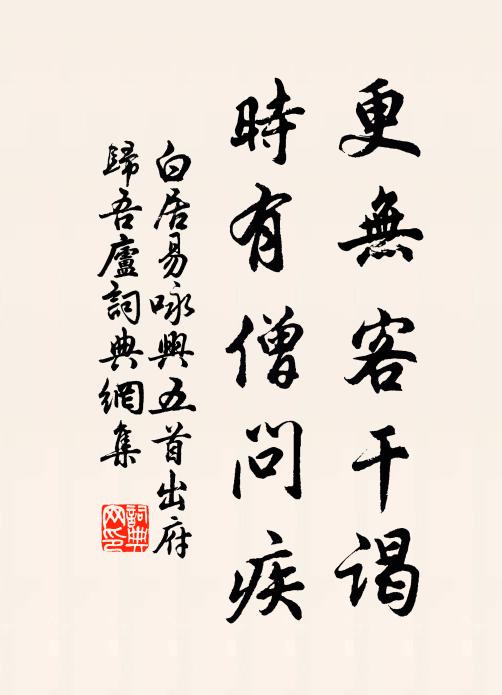 更無客干謁
時有僧問疾
白居易咏興五首出府
歸吾廬詞典網集
詞典
网印